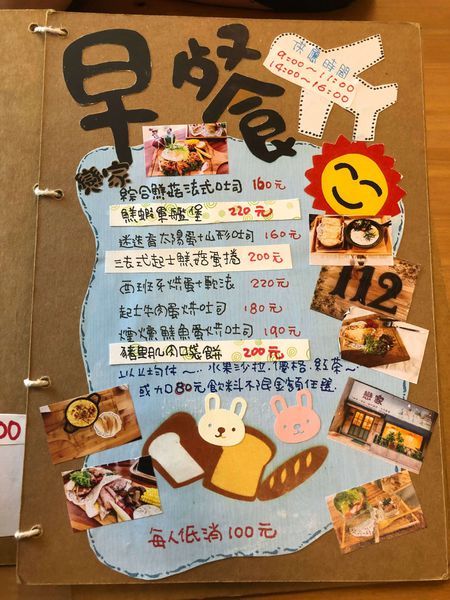 早餐
供應時間
9:00~11:00
14:00~16:00
戀家
綜合鮮菇法式吐司 160元
鮮蝦軍艦堡 220元
迷迭香太陽蛋山形吐司 160元
法式起士鮮菇蛋捲 200元
西班牙烘蛋+軟法 220元
起士牛肉蛋烘吐司 180元
燻鮭魚蛋烘吐司 190元
豬里肌肉口袋餅 200元
以上均休~水果沙拉.優格.紅茶~
或加80元飲料不限金額任選
112
戀家
每人低消100元
00